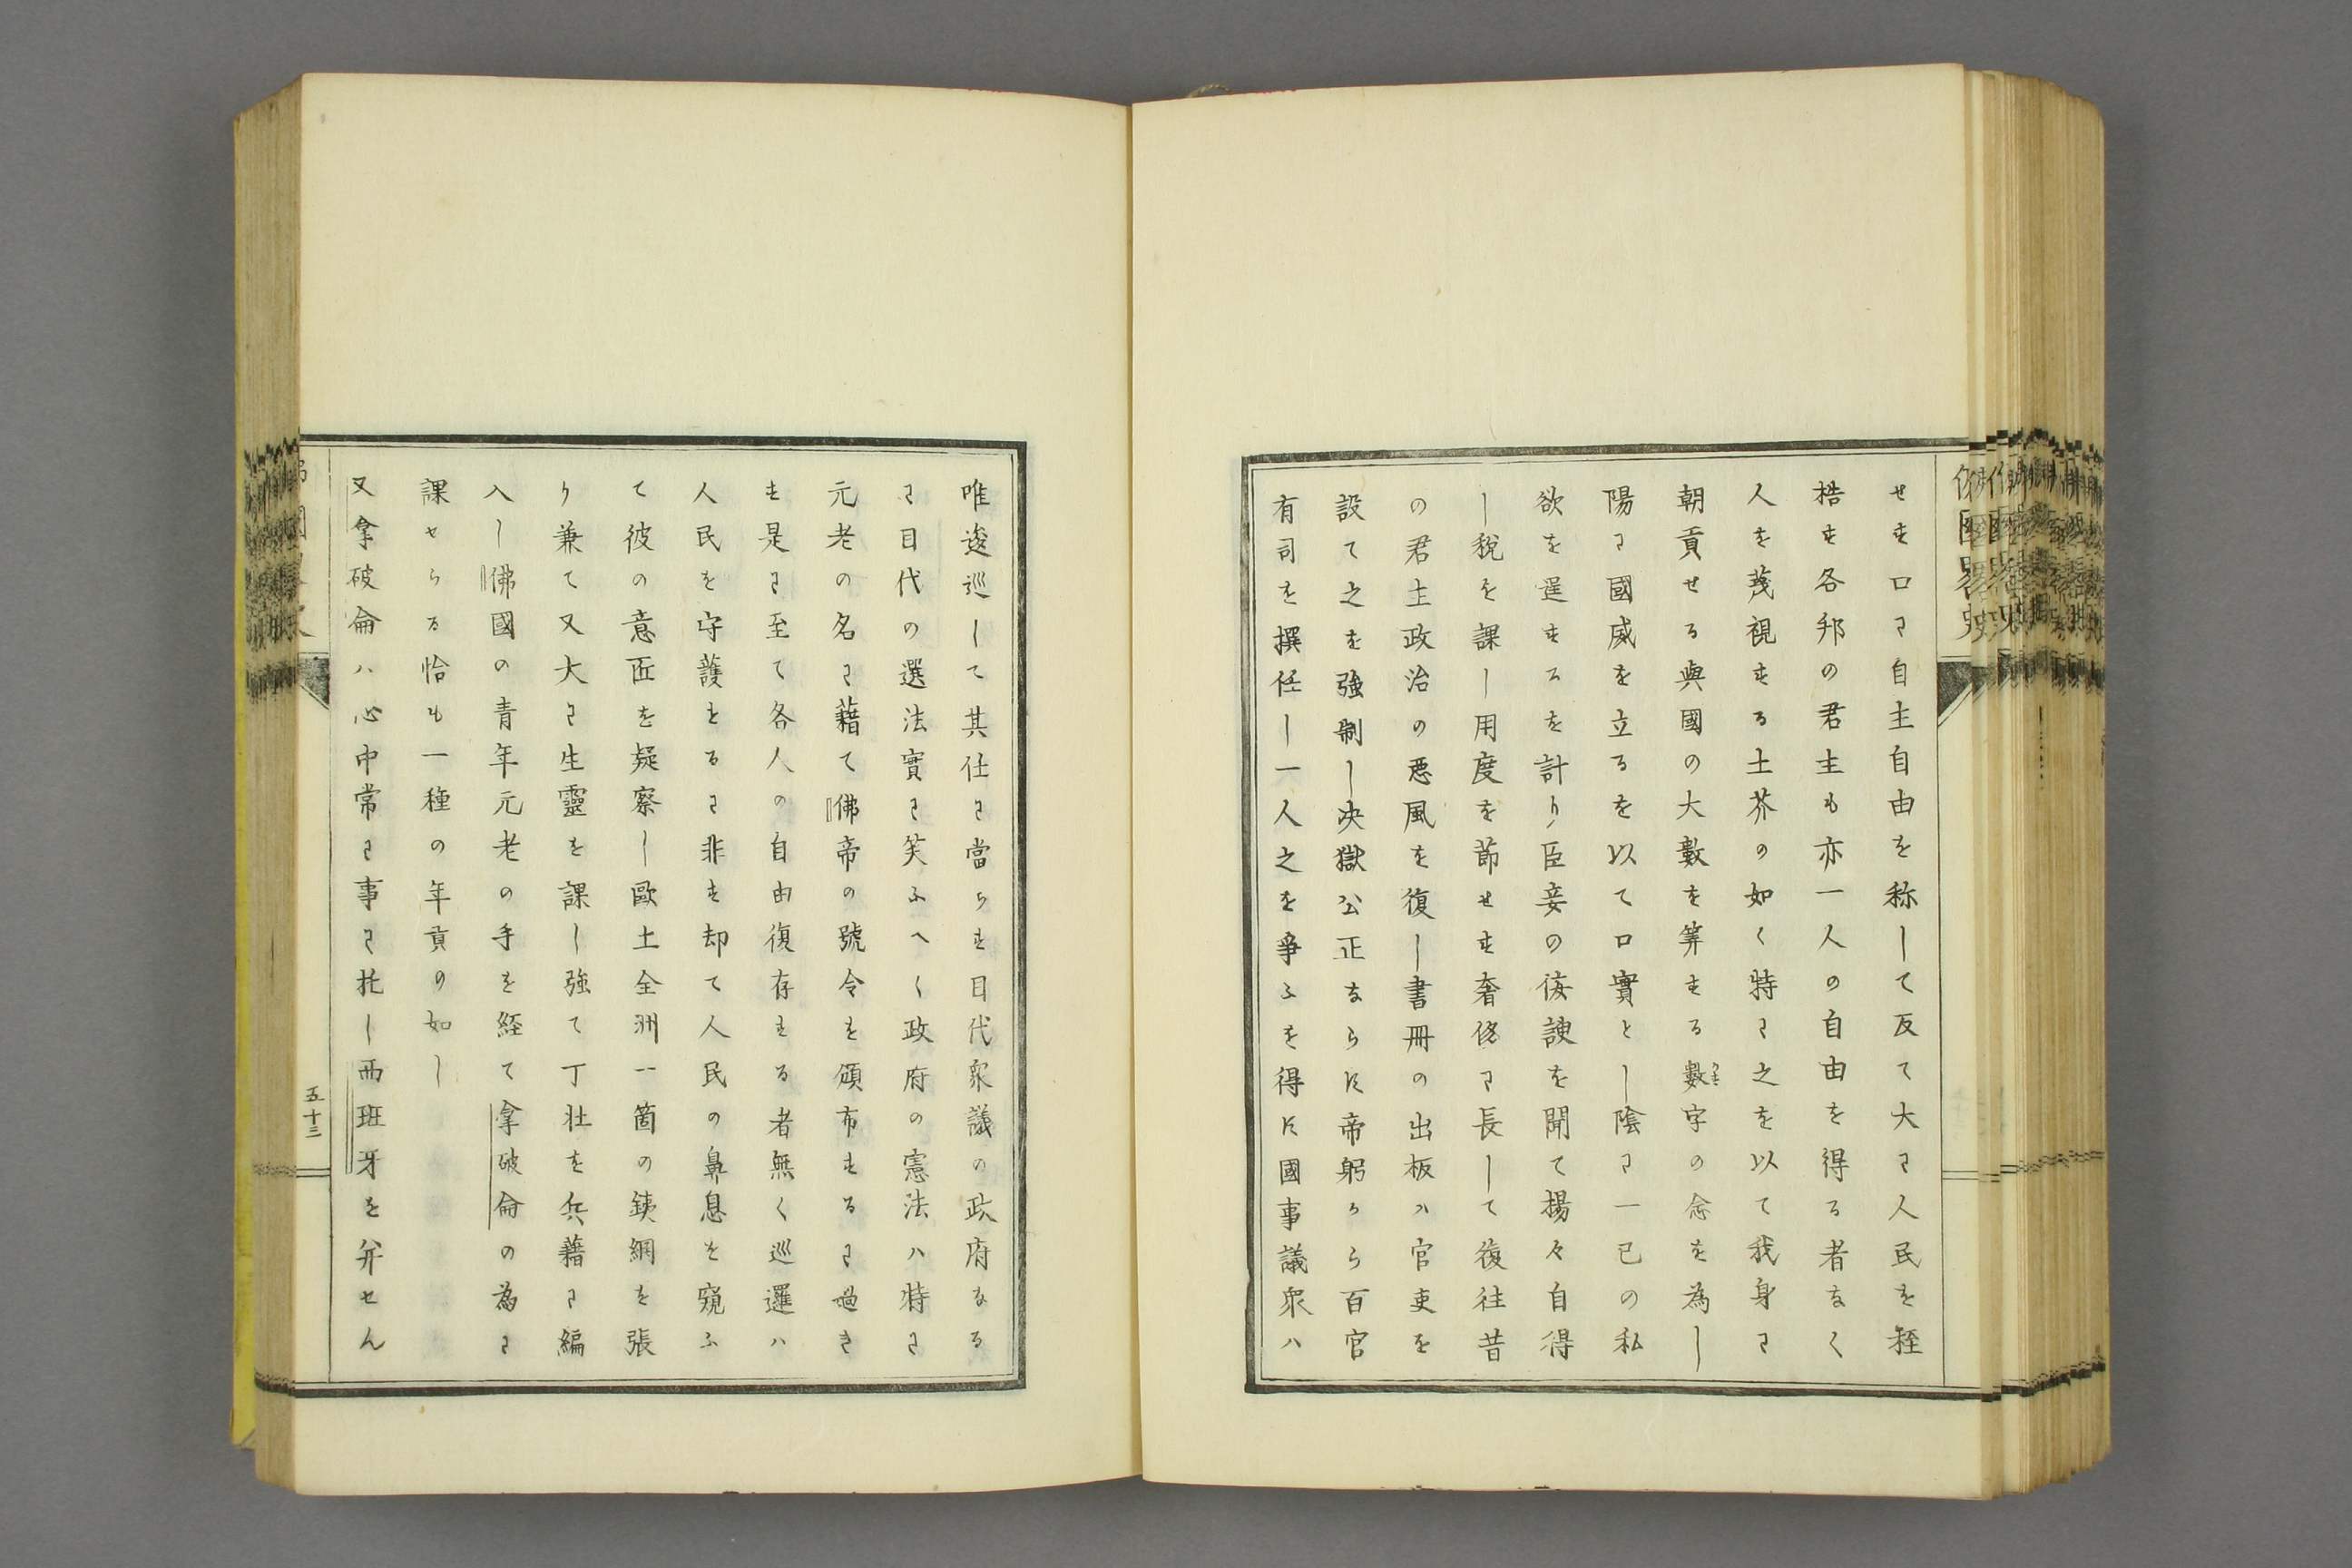 せす口に自主自由を称して反て大に人民を桎
梏す各邦の君主も亦一人の自由を得る者なく
人を蔑視する土芥の如く特に之を以て我身に
朝貢せる與國の大數を算する數字の念を為し
陽に國威を立るを以て口實とし陰に一己の私
欲を逞するを計り臣妾の諛を聞て揚々自得
し税を課し用度を節せす奢侈に長して復往昔
の君主政治の悪風を復し書冊の出板ハ官吏を
設て之を強制し決獄公正ならは帝躬から百官
有司を撰任し一人之を爭ふを得は國事議衆ハ
唯逡巡して其任に當らす目代衆議の政府なる
に目代の選法實に笑ふへく政府の憲法ハ特に
元老の名に藉て佛帝の號令を頒布するに過き
す是に至て各人の自由復存する者無く巡邏ハ
人民を守護するに非す却て人民の鼻息を窺ふ
て彼の意匠を疑察し歐土全洲一箇の銕網を張
り兼て又大に生靈を課し強て丁壮を兵藉に編
入し佛國の青年元老の手を経て拿破侖の為に
課せらる恰も一種の年貢の如し
又拿破侖ハ心中常に事に托し西班牙を弁せん
五十三